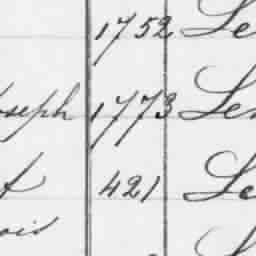 1752 Le
oseph 1773 Le
t 421 Le
ois